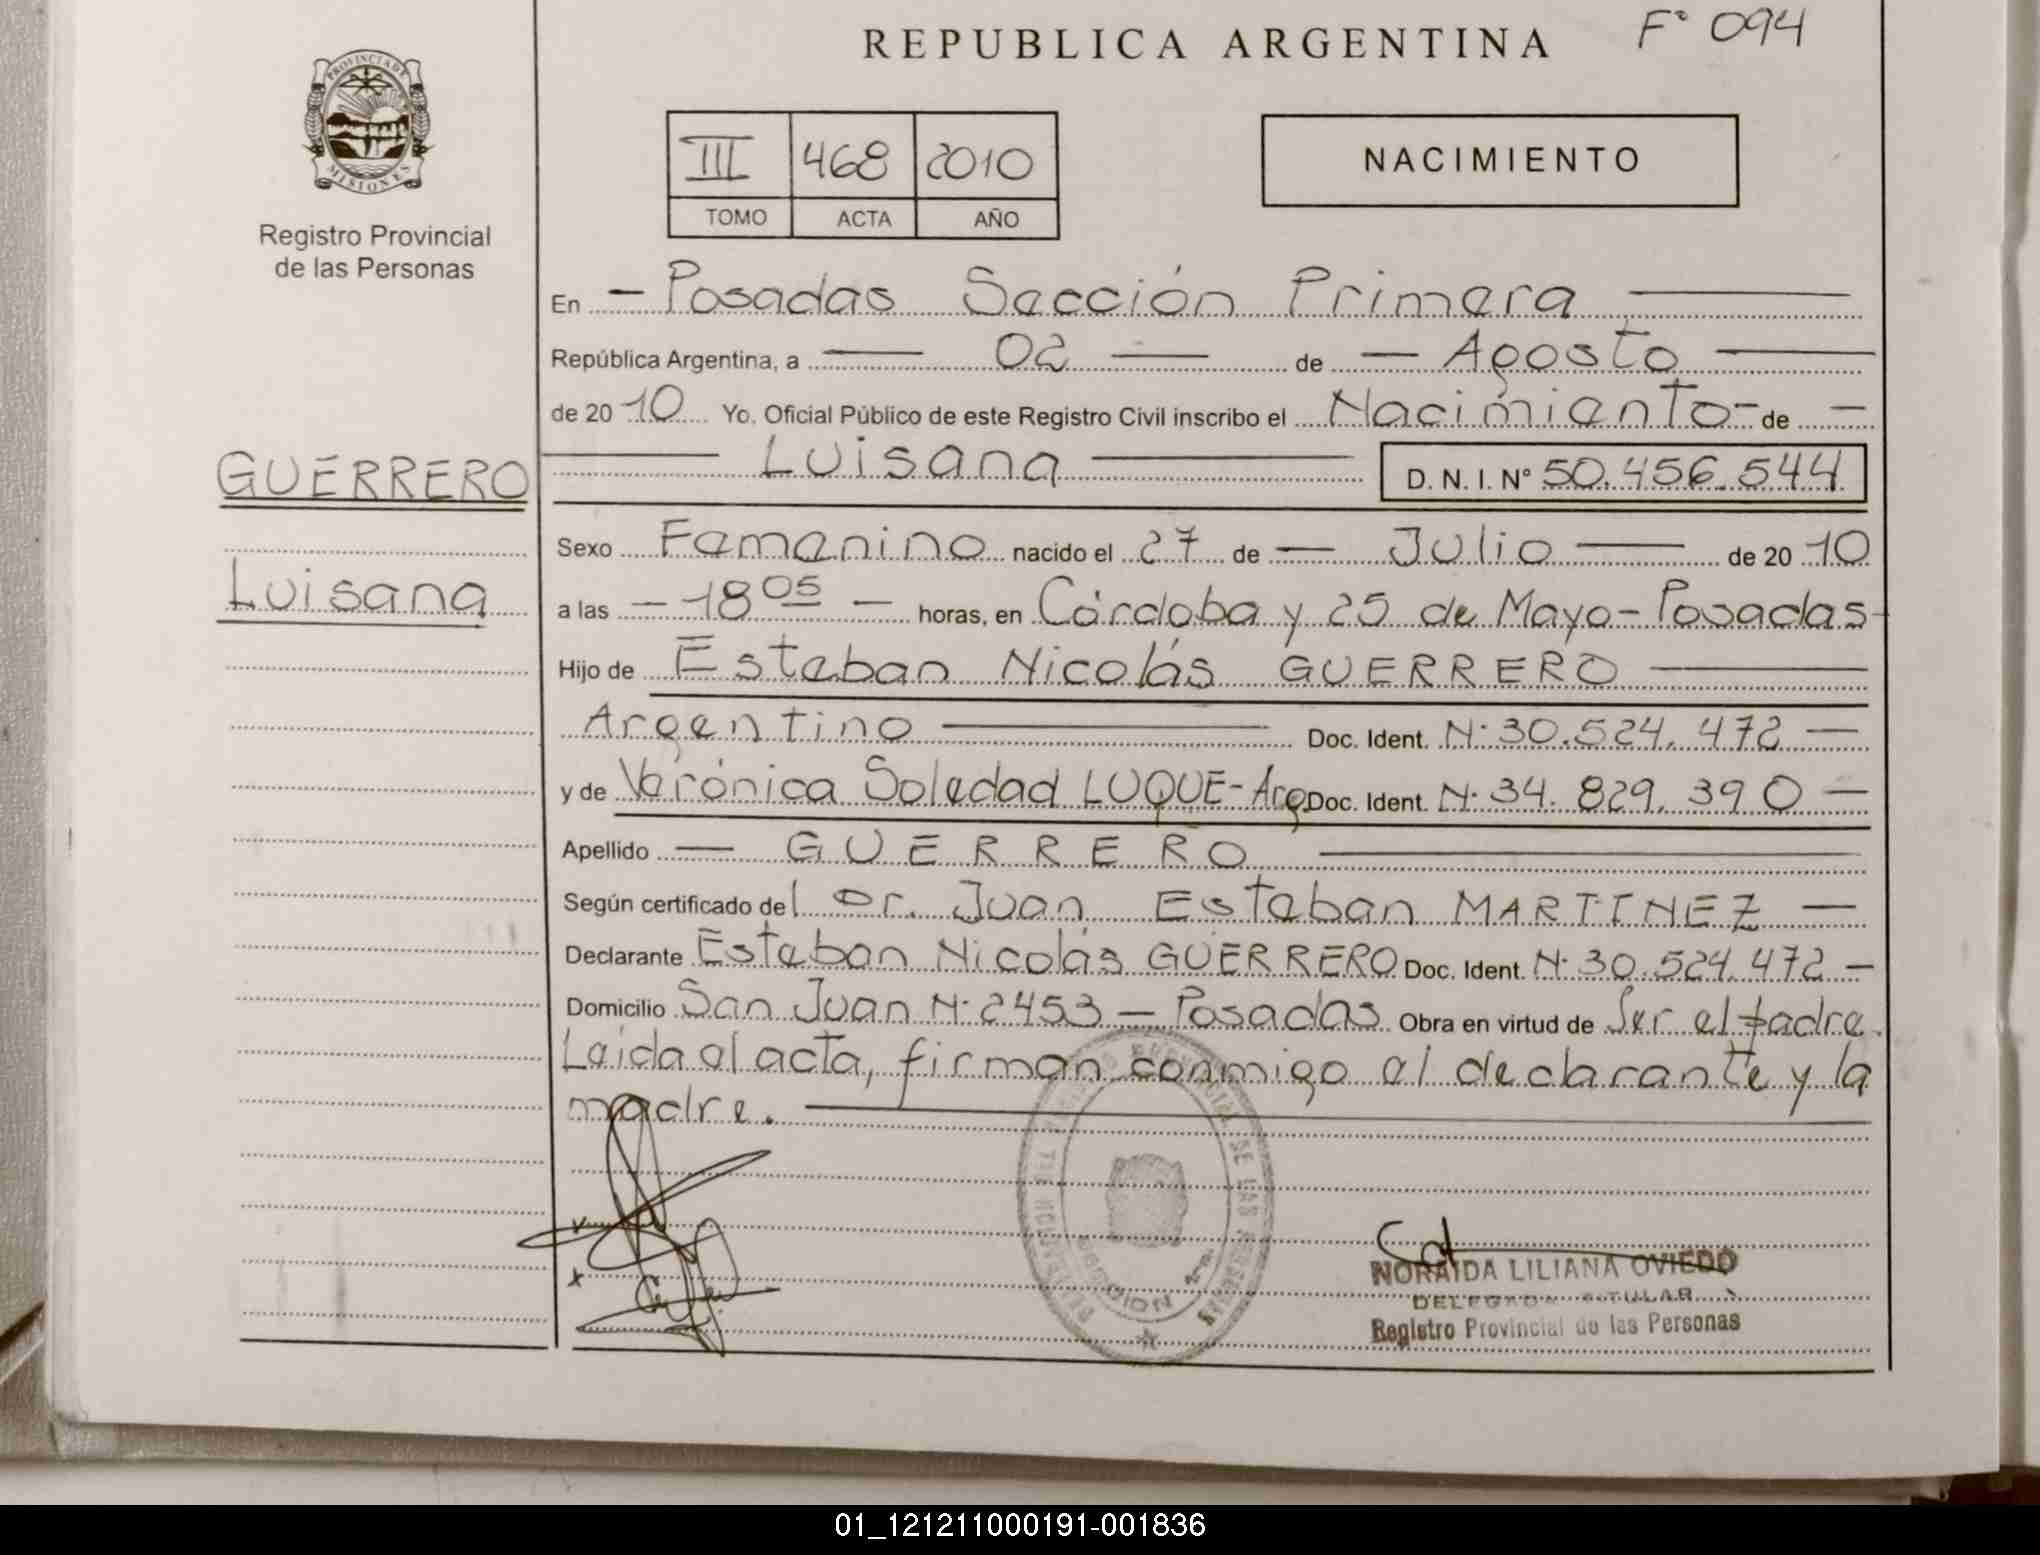 REPUBLICA ARGENTINA F° 094
PROVINCIA DE
MISIONES
Registro Provincial
de las Personas
III 468 2010
TOMO ACTA AÑO
NACIMIENTO
GUERRERO
Luisana
En - Posadas Sección Primera
República Argentina, a 02 de Agosto
de 20 10 Yo, Oficial Público de este Registro Civil inscribo el Nacimiento - de
Luisana D. N. I. N° 50.456.544
Sexo Femenino nacido el 27 de Julio de 20 10
a las - 18 05 - horas, en Córdoba y 25 de Mayo - Posadas -
Hijo de Esteban Nicolás GUERRERO
Argentino Doc. Ident. N° 30.524.472
y de Verónica Soledad LUQUE - Arg Doc. Ident. N° 34.829.390
Apellido - GUERRERO
Según certificado del Dr. Juan Esteban MARTINEZ
Declarante Esteban Nicolás GUERRERO Doc. Ident. N° 30.524.472
Domicilio San Juan N° 2453 - Posadas Obra en virtud de Ser el padre.
Leida el acta, firman conmigo el declarante y la
madre.
NORAIDA LILIANA OVIEDO
DELEGADA TITULAR
Registro Provincial de las Personas
01_121211000191-001836